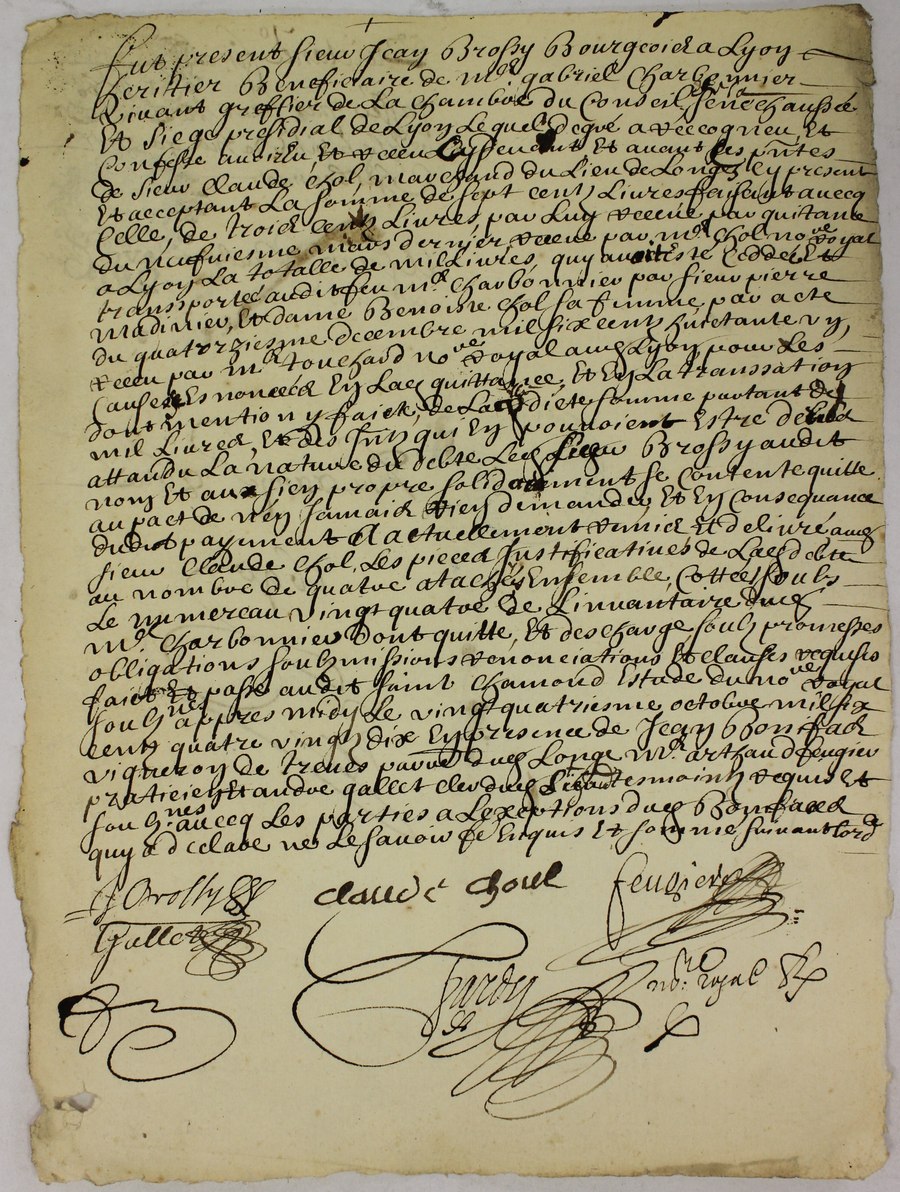 Fut present sieur Jean Brossy Bourgeois a Lyon
heritier Beneficiaire de mre gabriel Charbonnier
vivant greffier de La Chambre du Conseil en la senechaussée
Et siege presidial de Lyon Lequel de gré a recogneu Et
Confesse auoir eu Et receu Cy deuant Et auant Les pntes
de sieur Claude Chol, marchand du Lieu de Longes Cy present
Et acceptant La somme de sept centz Livres faisant auecq
Celle, de trois centz Livres par Luy receue par quitance
du neufuiesme mars dernier receue par mre Chol nore Royal
a Lyon La totalle de mil Livres, quy auoit esté Ceddeé Et
transporteé audit feu mre Charbonnier par sieur pierre
madinier, Et dame Benoiste Chol sa femme par acte
du quatorziesme decembre mil six cent huictante un,
receu par mre touchard nore Royal aud Lyon pour Les
Causes Enonceés En Lad quittance, Et En La transsation
dont mention y faict, de Laditte somme partant de
mil Livres, Et des Intz quy En pouroient Estre debus
attandu La nature du debte Led sieur Brossy audit
nom Et aux sien propre solidairement se Contente quitte
au pact de n'en Jamais Rien demander, Et En Consequance
dudit payement a actuellement remis Et deliuré aud
sieur Claude Chol, Les pieces Justificatiues de Lad debte
au nombre de quatre atacheés Ensemble, Cotteés soubs
Le numereau vingt quatre de L'inuantaire dud
mre Charbonnier Dont quitte, Et descharge soubz promesses
obligations soubmissions renonciations Et clauses requises
faict Et passé audit saint Chamond Estude du nore Royal
soubzné appres midy Le vingt quatriesme octobre mil six
centz quatre vingtz dix En presence de Jean Bonifack
vigneron de treues parre dud Longe mre arthaud feugier
praticien Et andre gallet clerc dud Lieu tesmoins requis Et
soubznes auecq Les parties a L'exeption dud Bonifack
quy a declaré ne Le sauoir de Enquis Et sommé suiuant L'ordce
J Brossy
Claude Choul
feugier
Gallet
Jardin
nore royal